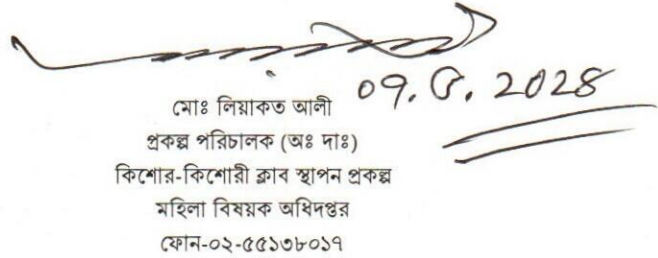 ০৭. ২০২৪
মোঃ লিয়াকত আলী
প্রকল্প পরিচালক (অঃ দাঃ)
কিশোর-কিশোরী ক্লাব স্থাপন প্রকল্প
মহিলা বিষয়ক অধিদপ্তর
ফোন-০২-৫৫১৩৮০১৭